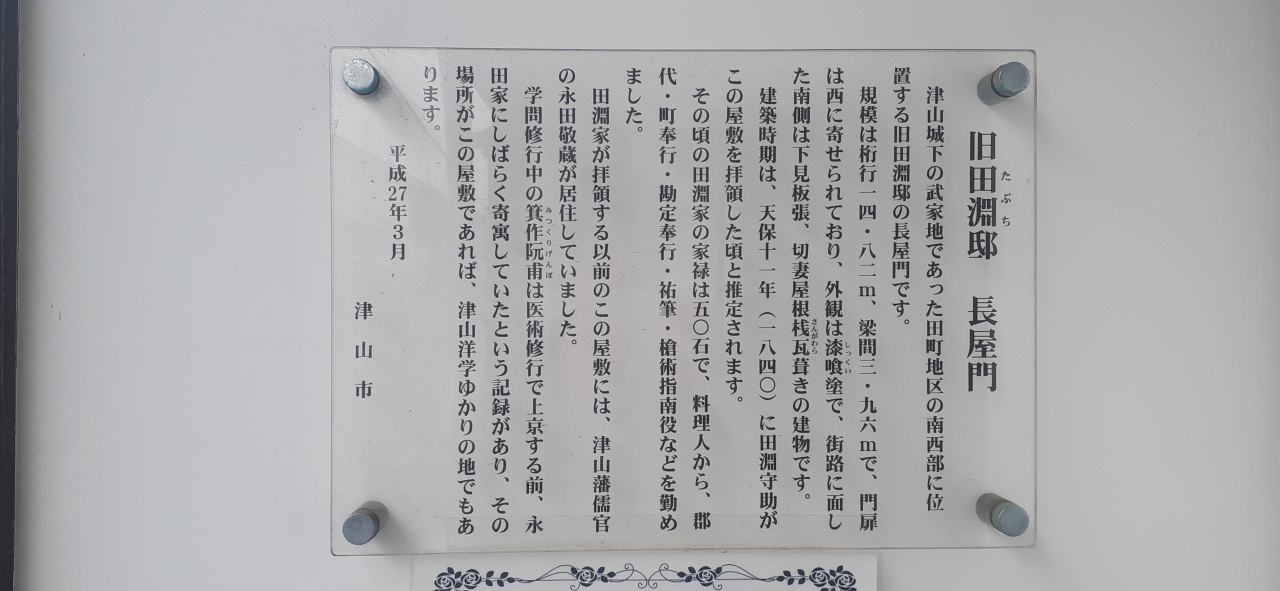 旧田淵邸　長屋門
たぶち
津山城下の武家地であった田町地区の南西部に位
置する旧田淵邸の長屋門です。
規模は桁行一四・八二ｍ、梁間三・九六ｍで、門扉
は西に寄せられており、外観は漆喰塗で、街路に面し
しっくい
た南側は下見板張、切妻屋根桟瓦葺きの建物です。
さんがわら
建築時期は、天保十一年（一八四〇）に田淵守助が
この屋敷を拝領した頃と推定されます。
その頃の田淵家の家禄は五〇石で、料理人から、郡
代・町奉行・勘定奉行・祐筆・槍術指南役などを勤め
ました。
田淵家が拝領する以前のこの屋敷には、津山藩儒官
の永田敬蔵が居住していました。
学問修行中の箕作阮甫は医術修行で上京する前、永
みつくりげんぽ
田家にしばらく寄寓していたという記録があり、その
場所がこの屋敷であれば、津山洋学ゆかりの地でもあ
ります。
平成27年３月
津山市